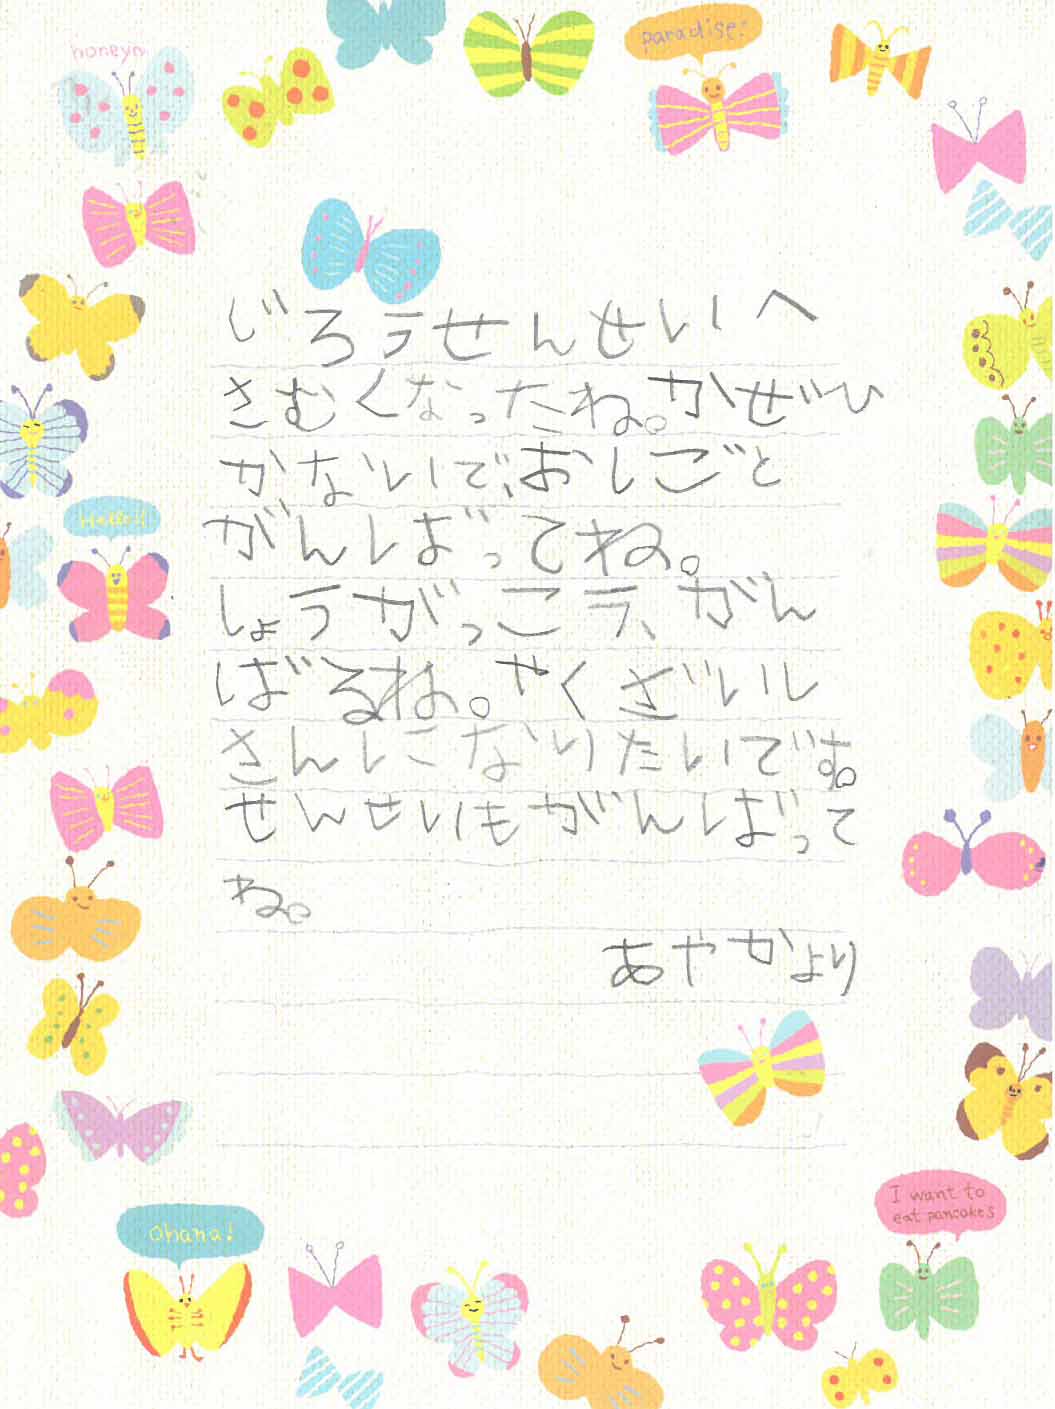 honeyn
paradise!
Hello!!
じろうせんせいへ
さむくなったね。かぜひ
かないで、おしごと
がんばってね。
しょうがっこう、がん
ばるね。やくざいし
さんになりたいです。
せんせいもがんばって
ね。
あやかより
I want to
eat pancakes
ohana!